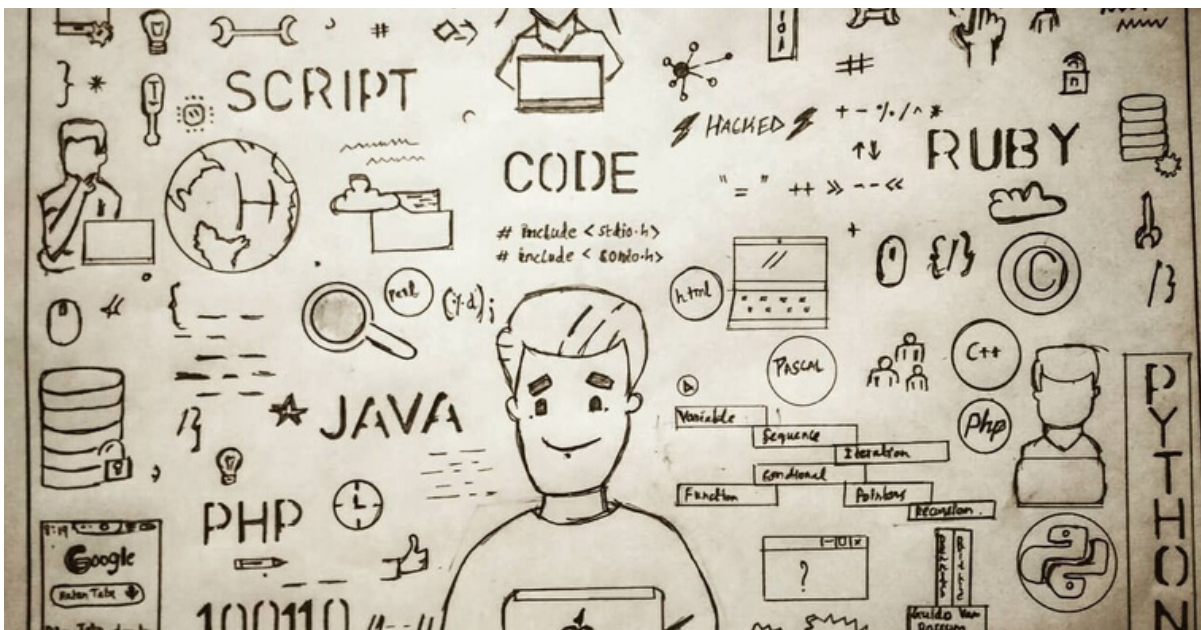 SCRIPT
CODE
HACKED
+ - % / ^ *
RUBY
" = " ++ >> -- <<
# include < stdio.h>
# include < conio.h>
{/}
C
/}
perl
(%d);
html
PASCAL
C++
Php
JAVA
/}
Variable
Sequence
Iteration
Conditional
Function
Pointers
Recursion
PYTHON
PHP
8:19
Google
Ratan Tata
?
100110
Guido Van
Rossum